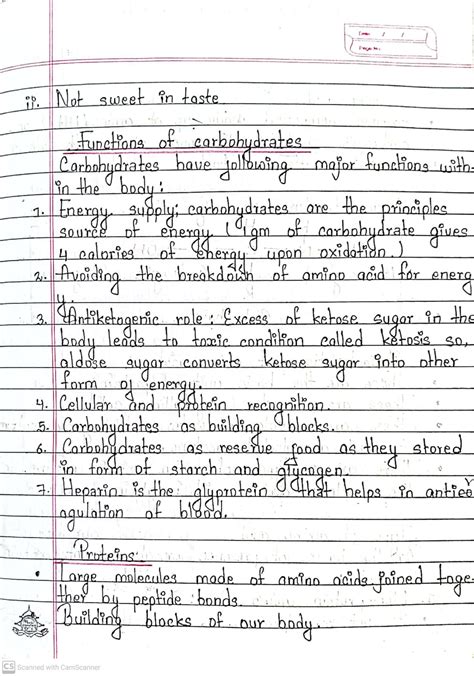 Date: / /
Page No:
ii. Not sweet in taste
Functions of carbohydrates
Carbohydrates have following major functions with-
in the body:
1. Energy supply; carbohydrates are the principles
source of energy (1gm of carbohydrate gives
4 calories of energy upon oxidation.)
2. Avoiding the breakdown of amino acid for energ
y.
3. Antiketogenic role: Excess of ketose sugar in the
body leads to toxic condition called ketosis so,
aldose sugar converts ketose sugar into other
form of energy.
4. Cellular and protein recognition.
5. Carbohydrates as building blocks.
6. Carbohydrates as reserve food as they stored
in form of starch and glycogen.
7. Heparin is the glyprotein that helps in antico
agulation of blood.
Proteins:
• Large molecules made of amino acids joined toge
ther by peptide bonds.
Building blocks of our body.
CS Scanned with CamScanner